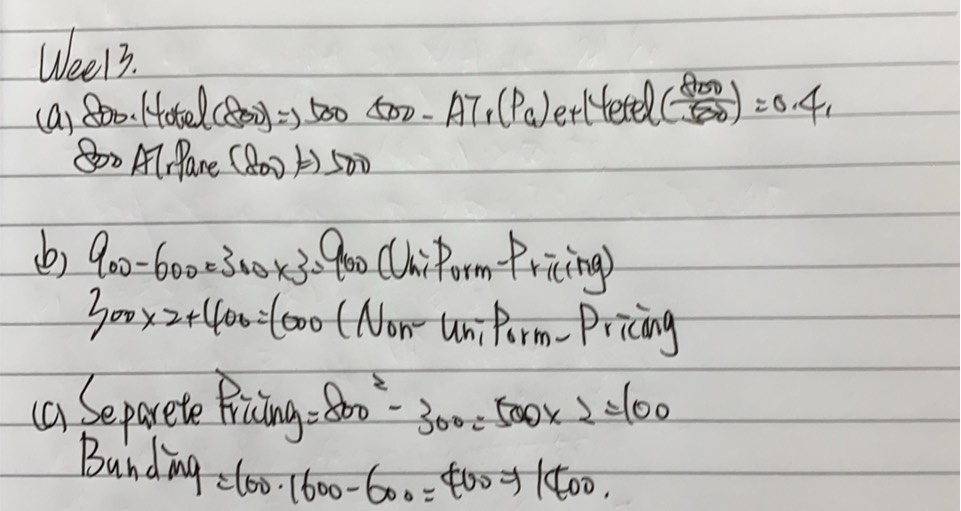 Wee13.
(a) 800. Hotel (800) => 500 500 - AIr(Pa)e+Hotel (800/500) = 0.4,
800 AIrPare (800) => 500
b) 900-600=300x3=900 (UniForm-Pricing)
300x2+400=1000 (Non-UniForm-Pricing
(c) Separete Pricing=800² - 300=500x2=100
Bunding =100.1600-600=400=>1400.